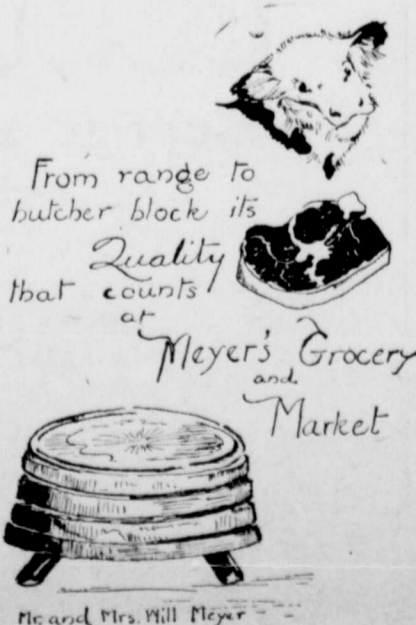 From range to
butcher block its
Quality
that counts
at
Meyer's Grocery
and
Market
Mr. and Mrs. Will Meyer